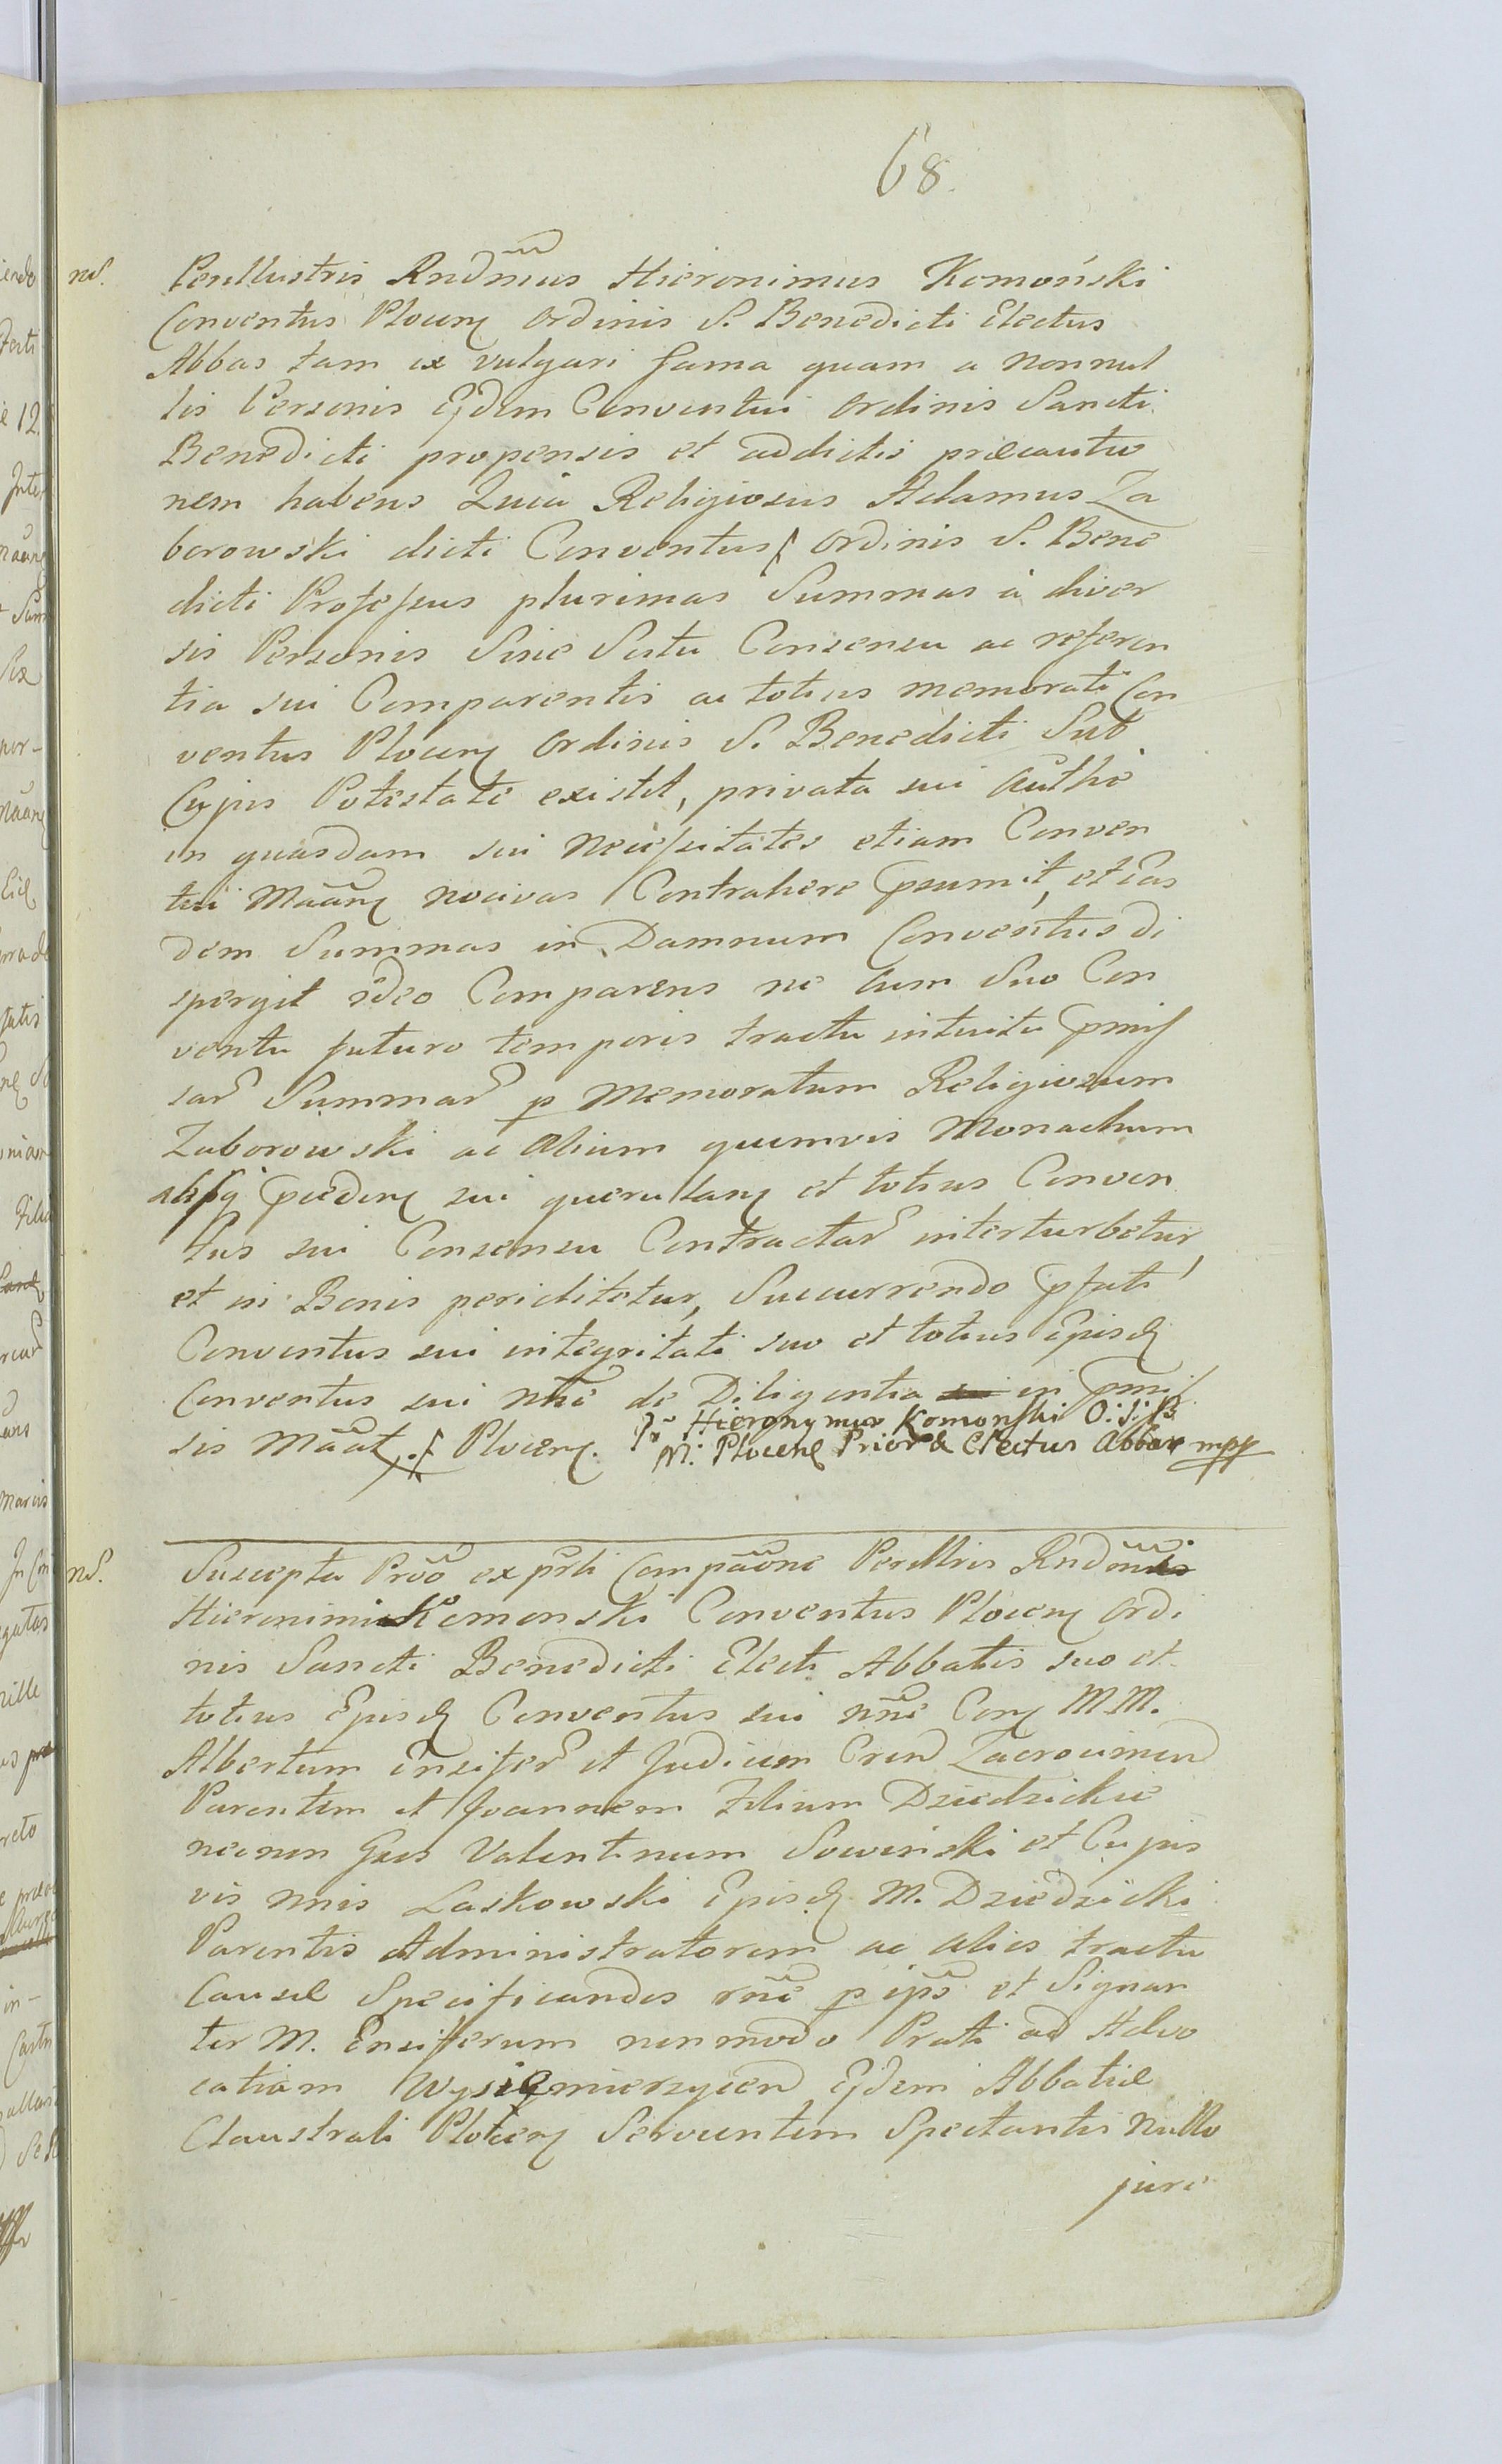 68.
nS. Perillustris Rndmus Hieronimus Komoński
Conventus Plocen Ordinis S. Benedicti Electus
Abbas tam ex vulgari fama quam a nonnul
lis Personis Ejdem Conventui Ordinis Sancti
Benedicti propensis et addictis præcautio
nem habens Quia Religiosus Adamus Za
borowski dicti Conventus Ordinis S. Bene
dicti Professus plurimas Summas à diver
sis Personis Sine Scitu Consensu ac referen
tia sui Comparentis ac totius memorati Con
ventus Plocen Ordinis S. Benedicti Sub
Cujus Potestate existit, privata sui autho
in quasdam sui necessitates etiam Conven
tui nocivas Contrahere psumit, et eas
dem Summas in Damnum Conventus di
spergit ideo Comparens ne cum Suo Con
ventu futuro temporis tractu intuitu pmis
sar Summar p Memoratum Religiosum
Zaborowski ac alium quemvis Monachum
absq sui querulan et totius Conven
tus sui Consensu Contractar interturbetur,
et in Bonis periclitetur, Succurrendo pfati
Conventus sui integritati suo et totius Ejusd
Conventus sui nne de Diligentia in pmis
sis Maat. Plocen. Hieronymus Komonski O: S: B:
M: Plocen Prior & Electus Abbas mpp
nS. Suscepta Proõ ex prti Compaõne Perillris Rndmi
Hieronimi Komonski Conventus Plocen Ordi
nis Sancti Benedicti Electi Abbatis suo et
totius Ejusd Conventus sui nne Con M.M.
Albertum Ensifer et Judicem Cren Zacrocimen
Parentem et Joannem Filium Dziedzickie
necnon Gnos Valentinum Sowinski et Cujus
vis nnis Laskowski Ejusd M. Dziedzicki
Parentis Administratorem ac alios tractu
Causæ Specificandos rne p ipõ et Signan
ter M. Ensiferum nonmodo Prati ad Advo
catiam Ejdem Abbatiæ
Claustrali Plocen Servientem Spectantis nullo
jure